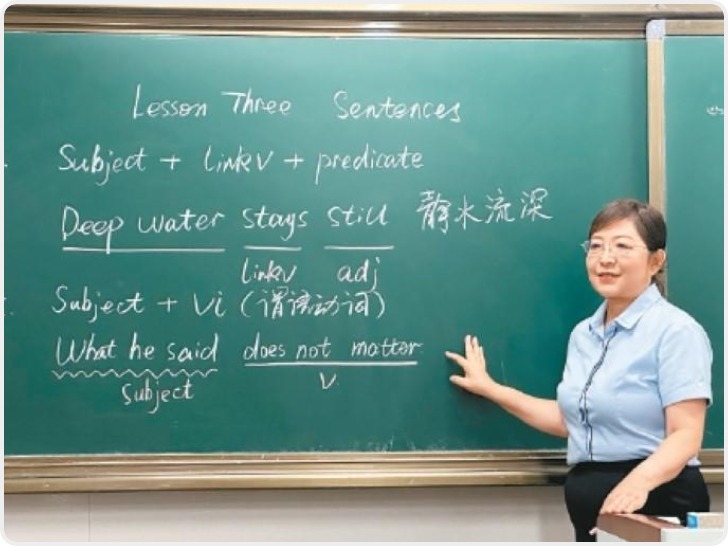 Lesson Three Sentences
Subject + linkv + predicate
Deep water stays still 静水流深
linkv adj
Subject + Vi (谓语动词)
What he said does not matter
Subject V.